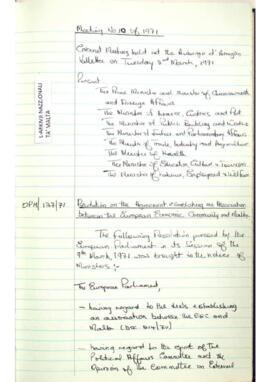 Meeting No 10 of 1971
Cabinet Meeting held at the Auberge d'Aragon
Valletta on Tuesday 2nd March, 1971
Present
The Prime Minister and Minister of Commonwealth
and Foreign Affairs
The Minister of Finance, Customs and Port
The Minister of Public Building and Works
The Minister of Justice and Parliamentary Affairs
The Minister of Trade, Industry and Agriculture
The Minister of Health
The Minister of Education Culture & Tourism
The Minister of Labour, Employment & Welfare
L-ARKIVJI NAZZJONALI
TA' MALTA
OPM/137/71
Resolution on the Agreement establishing an Association
between the European Economic Community and Malta
The following Resolution passed by the
European Parliament in its Session of the
9th March, 1971 was brought to the notice of
Ministers :-
The European Parliament,
- having regard to the deeds establishing
an association between the EEC and
Malta
- having regard to the report of the
Political Affairs Committee and the
Opinion of the Committee on External